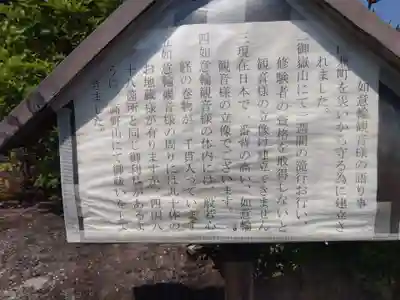 如意輪観音様の語り事
一、港町を災いから守る為に建立さ
れました。
二、御嶽山にて二週間の滝行お行い、
修験者の資格を取得しないと
観音様の立像は建立できません
三、現在日本で一番背の高い、如意輪
観音様の立像でございます。
四、如意輪観音様の体内には、般若心
経の巻物が、千貫入っています
五、如意輪観音様の周りには八十体の
お地蔵様が有りますが、四国八
十八箇所と同じ御利益があるよ
うに、高野山にて御祓いをして
きました。